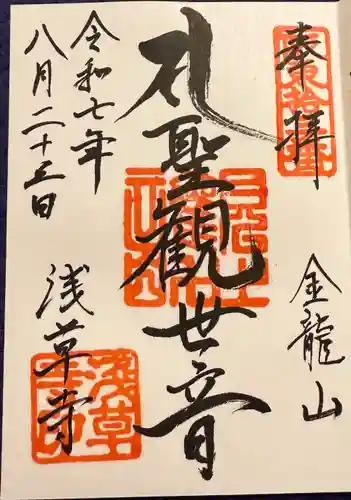 奉拝
坂東拾三番
金龍山
聖観世音
令和七年
八月二十五日
浅草寺
浅草
寺印